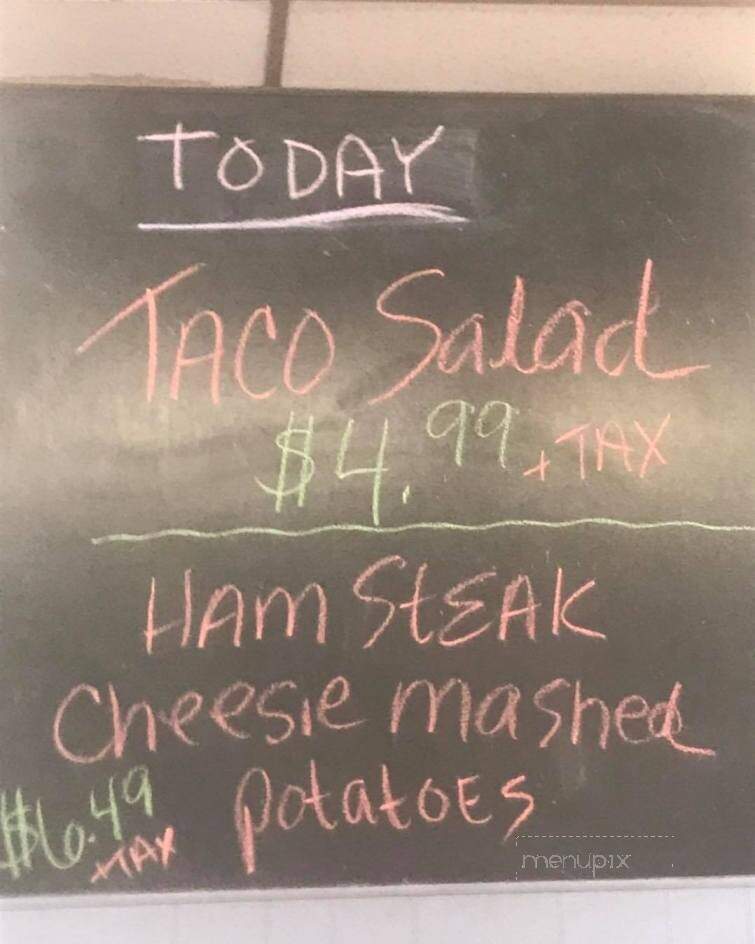 TODAY
TACO Salad
$4.99 + TAX
HAM StEAK
Cheesie mashed
potatoes
$6.49
+TAX
menupix